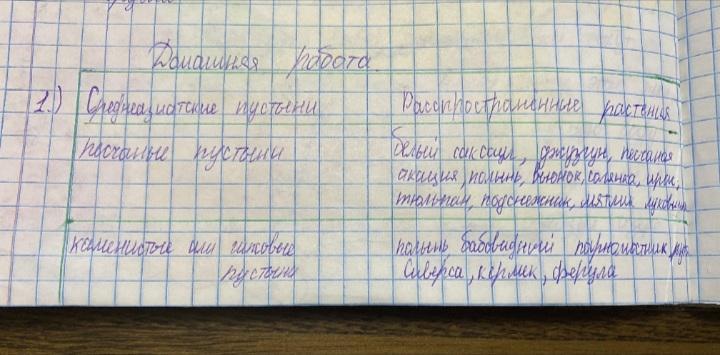 Домашняя работа.
1.) Среднеазиатские пустыни Распространенные растения
песчаные пустыни белый саксаул, джузгун, песчаная
акация, полынь, вьюнок, солянка, ирис,
тюльпан, подснежник, мятлик луковичн
каменистые или гипсовые полынь бобовидный парнолистник,
пустыни Сиверса, кермек, ферула